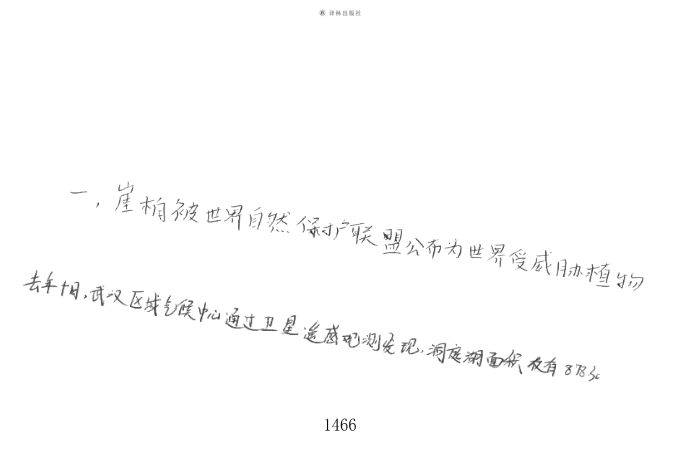 译林出版社
一，崖柏被世界自然保护联盟公布为世界受威胁植物
去年十月，武汉区域气候中心通过卫星遥感观测发现，洞庭湖面积仅有878
1466